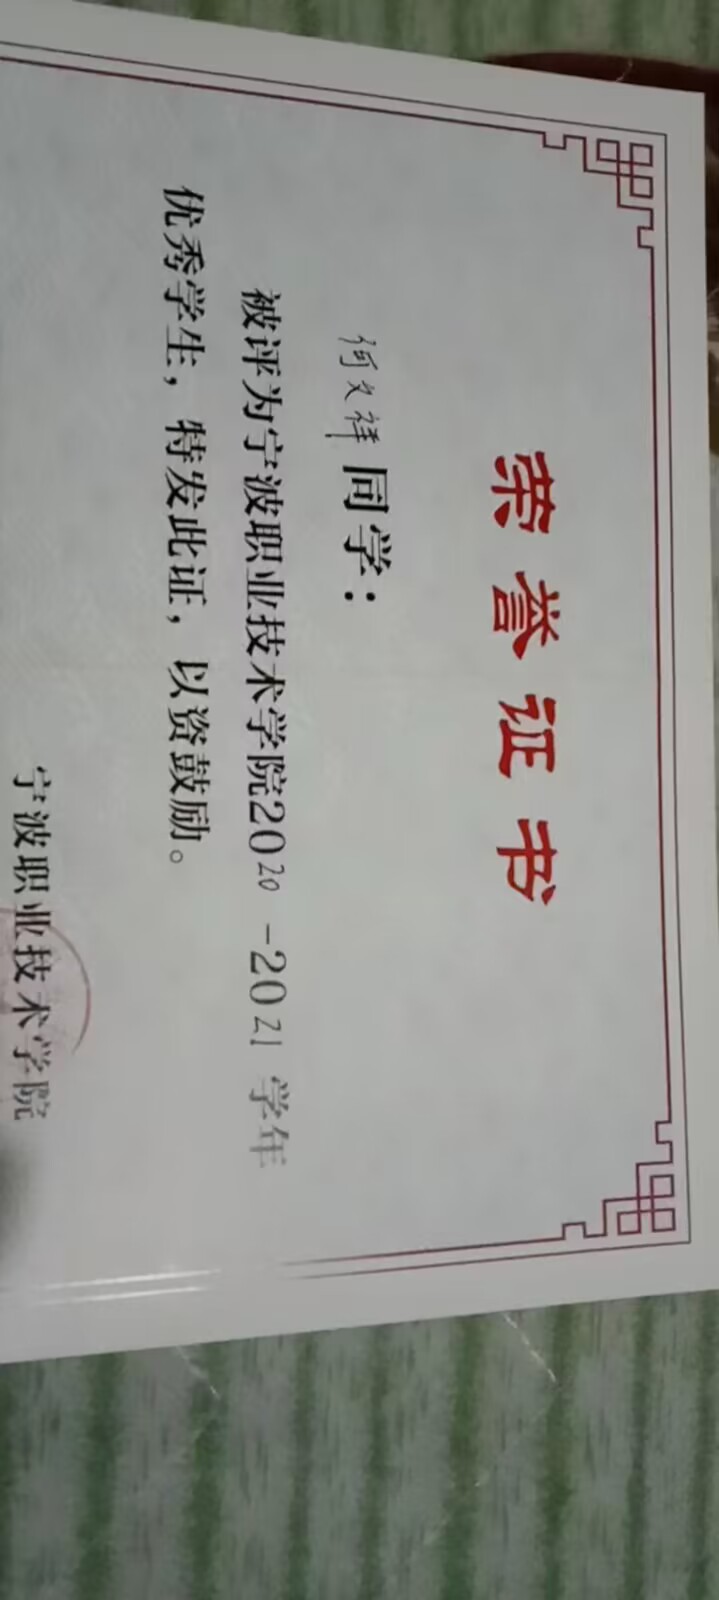 荣誉证书
何文祥同学：
被评为宁波职业技术学院2020-2021学年
优秀学生，特发此证，以资鼓励。
宁波职业技术学院